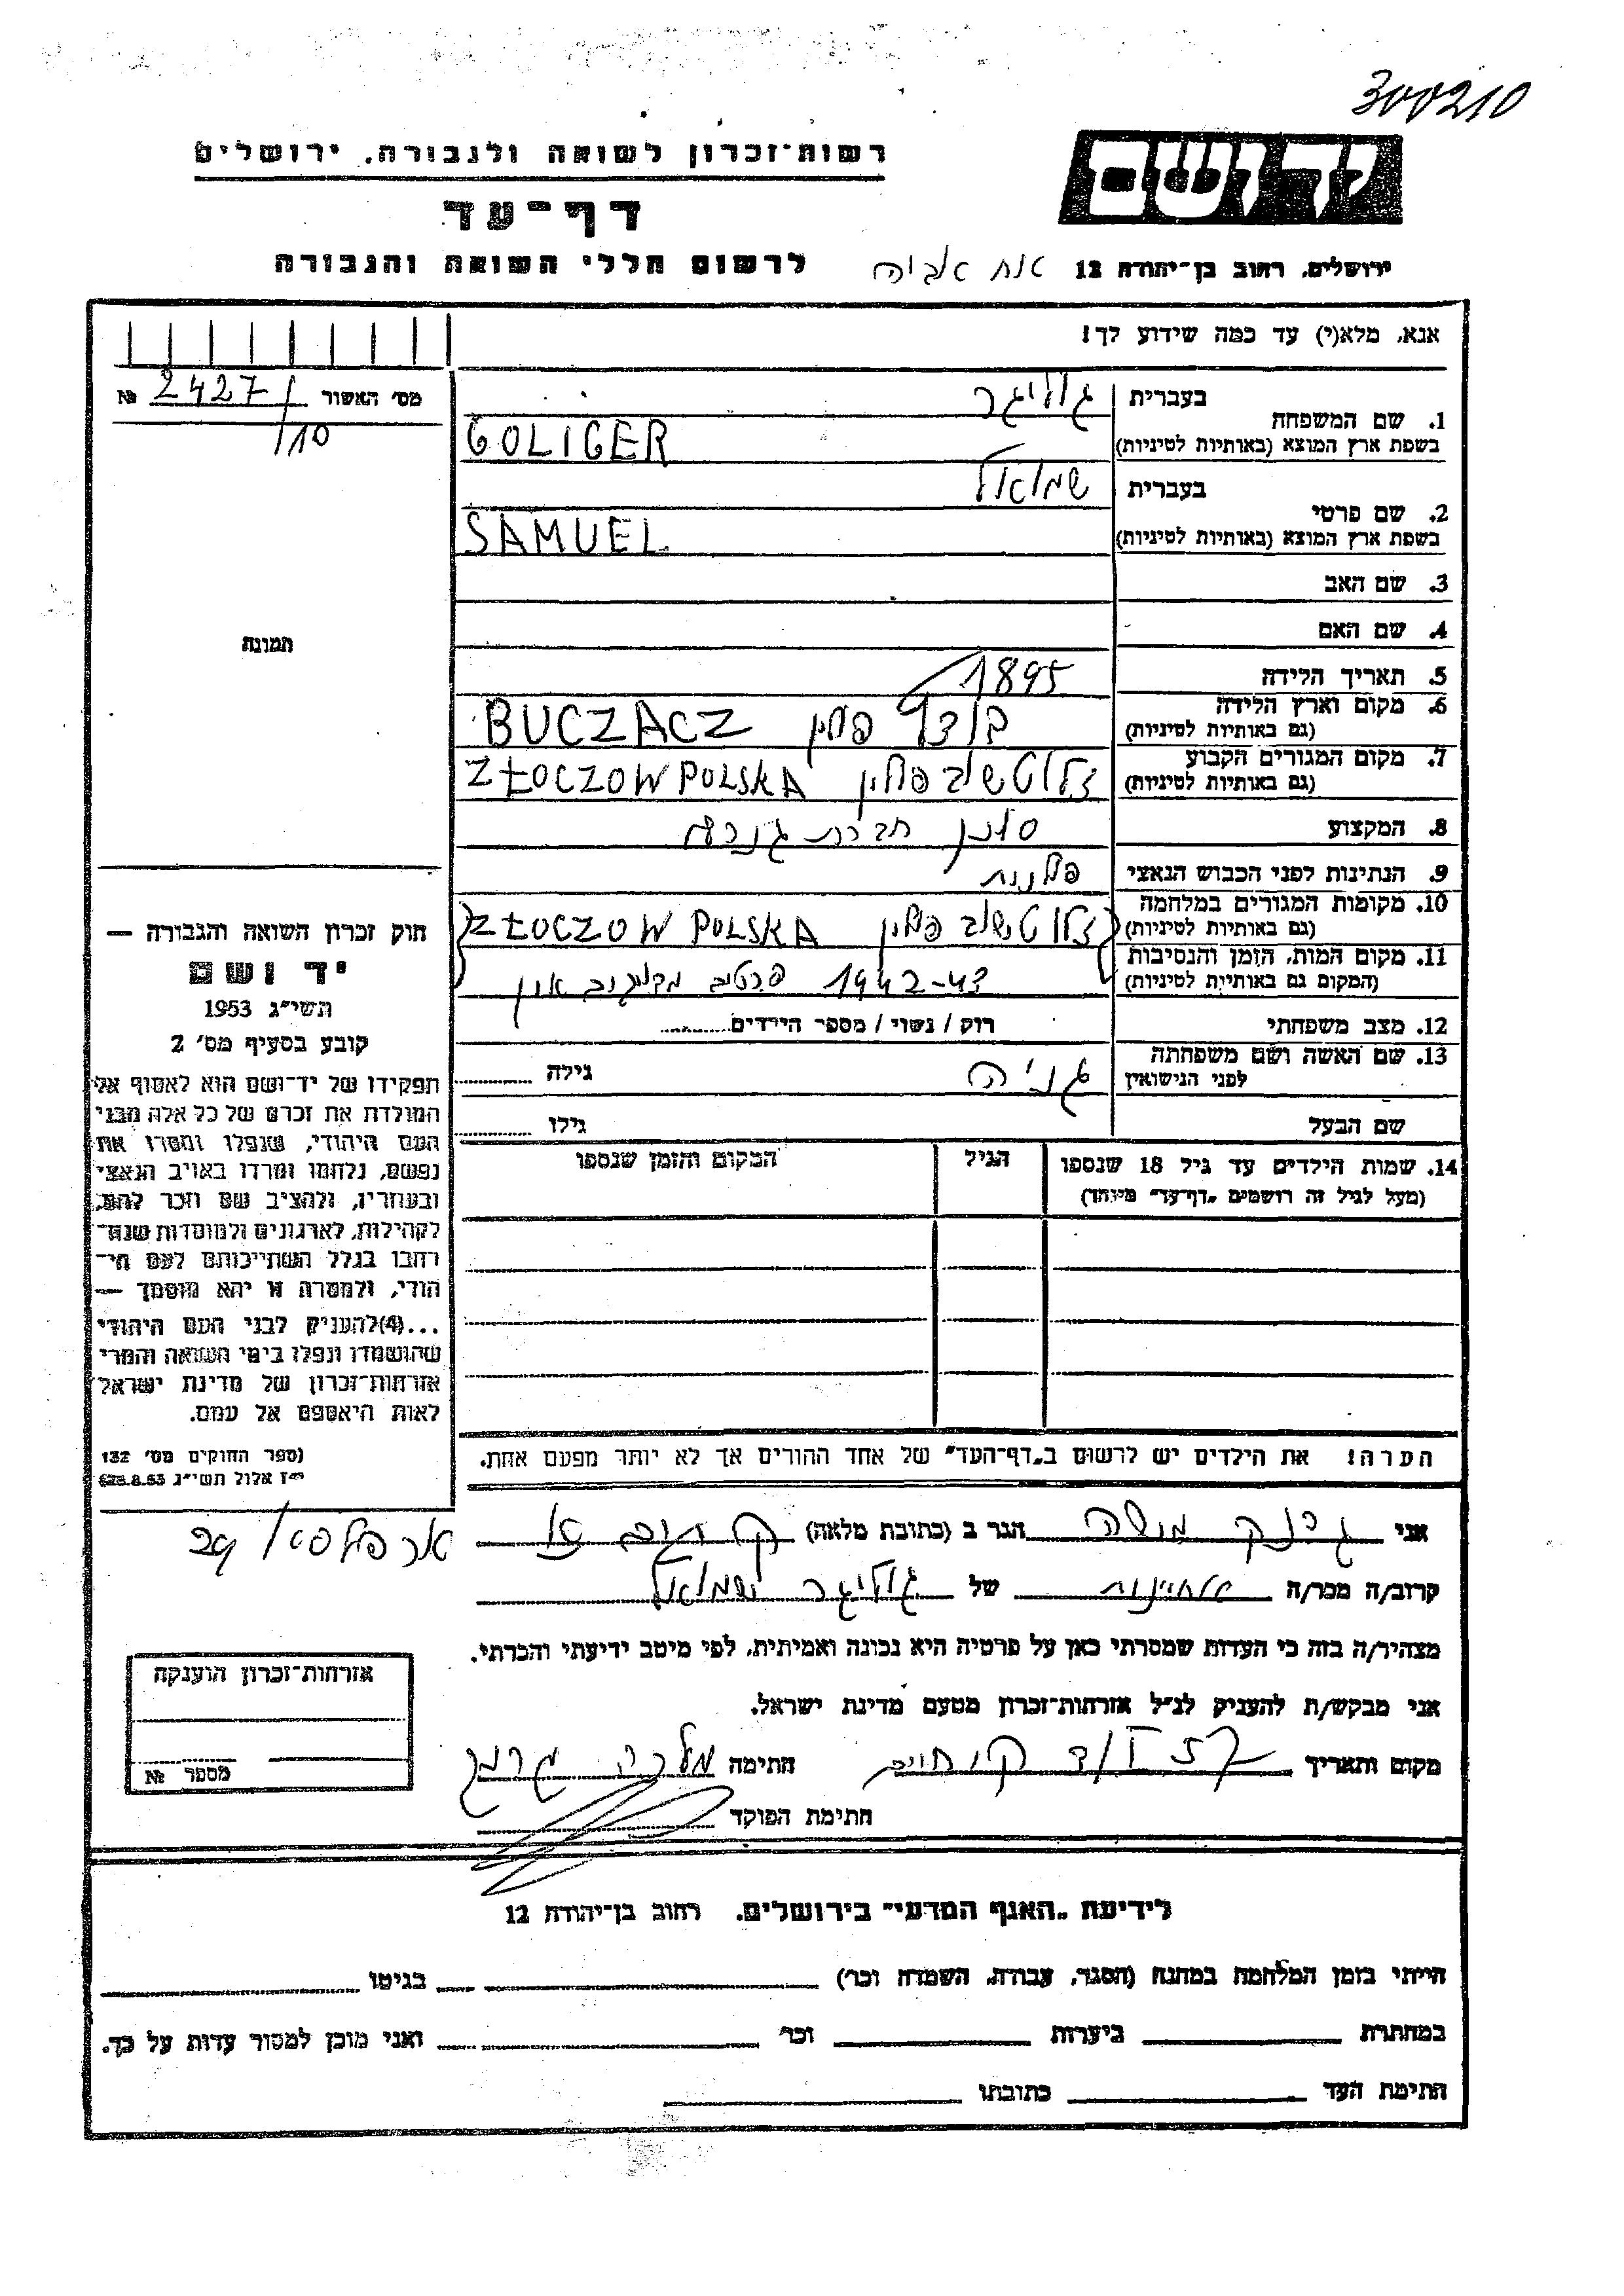 300210
יד ושם
רשות־זכרון לשואה ולגבורה, ירושלים
דף־עד
לרשום חללי השואה והגבורה
ירושלים, רחוב בן־יהודה 12
אנא, מלא(י) עד כמה שידוע לך!
מס' האשור 2427/10 №
1. שם המשפחה
בעברית גוליגר
בשפת ארץ המוצא (באותיות לטיניות) GOLIGER
2. שם פרטי
בעברית שמואל
בשפת ארץ המוצא (באותיות לטיניות) SAMUEL
3. שם האב
4. שם האם
5. תאריך הלידה 1895
6. מקום וארץ הלידה
(גם באותיות לטיניות) פולין BUCZACZ
7. מקום המגורים הקבוע
(גם באותיות לטיניות) זלוטשוב פולין ZŁOCZOW POLSKA
8. המקצוע סוכן חברת
9. הנתינות לפני הכבוש הנאצי פולנית
10. מקומות המגורים במלחמה
(גם באותיות לטיניות) זלוטשוב פולין ZŁOCZOW POLSKA
11. מקום המות, הזמן והנסיבות
(המקום גם באותיות לטיניות) 1942-43 פרטים מדויקים אין
12. מצב משפחתי רווק / נשוי / מספר הילדים
13. שם האשה ושם משפחתה
לפני הנישואין גניה גילה
שם הבעל גילו
14. שמות הילדים עד גיל 18 שנספו הגיל המקום והזמן שנספו
(מעל לגיל זה רושמים „דף־עד" מיוחד)
הערה! את הילדים יש לרשום ב„דף־העד" של אחד ההורים אך לא יותר מפעם אחת.
תמונה
חוק זכרון השואה והגבורה —
יד ושם
תשי"ג 1953
קובע בסעיף מס' 2
תפקידו של יד־ושם הוא לאסוף אל
המולדת את זכרם של כל אלה מבני
העם היהודי, שנפלו ומסרו את
נפשם, נלחמו ומרדו באויב הנאצי
ובעוזריו, ולהציב שם וזכר להם,
לקהילות, לארגונים ולמוסדות שנח־
רבו בגלל השתייכותם לעם הי־
הודי, ולמטרה זו יהא מוסמך —
...(4)להעניק לבני העם היהודי
שהושמדו ונפלו בימי השואה והמרי
אזרחות־זכרון של מדינת ישראל
לאות היאספם אל עמם.
(ספר החוקים מס' 132
י"ז אלול תשי"ג 28.8.53)
אני משה הגר ב (כתובת מלאה) 29/
קרוב/ה מכר/ה של גוליגר שמואל
מצהיר/ה בזה כי העדות שמסרתי כאן על פרטיה היא נכונה ואמיתית, לפי מיטב ידיעתי והכרתי.
אני מבקש/ת להעניק לנ"ל אזרחות־זכרון מטעם מדינת ישראל.
מקום ותאריך חתימה
חתימת הפוקד
אזרחות־זכרון הוענקה
מספר №
לידיעת „האגף המדעי" בירושלים, רחוב בן־יהודה 12
הייתי בזמן המלחמה במחנה (הסגר, עבודה, השמדה וכו') בגיטו
במחתרת ביערות וכו' ואני מוכן למסור עדות על כך.
חתימת העד כתובתו